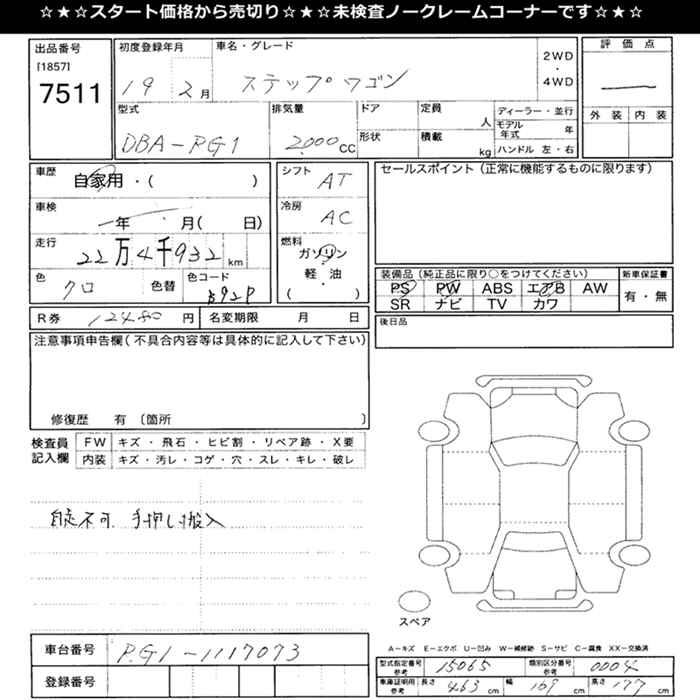 ☆★☆スタート価格から売切り☆★☆未検査ノークレームコーナーです☆★☆
出品番号 [1857] 7511
初度登録年月 19 2月
車名・グレード ステップワゴン
2WD・4WD
評価点 —
外装 内装
型式 DBA-RG1
排気量 2000cc
ドア 形状
定員 人
積載 kg
ディーラー・並行
モデル年式 年
ハンドル 左・右
車歴 自家用・( )
シフト AT
セールスポイント(正常に機能するものに限ります)
車検 年 月( 日)
冷房 AC
走行 22万4千932km
燃料 ガソリン 軽・油 ( )
色 クロ 色替
色コード B92P
装備品(純正品に限り○をつけてください)
PS PW ABS エアB AW
SR ナビ TV カワ
新車保証書 有・無
R券 12480円
名変期限 月 日
後日品
注意事項申告欄(不具合内容等は具体的に記入して下さい)
修復歴 有 〔箇所 〕
検査員記入欄
FW キズ・飛石・ヒビ割・リペア跡・X要
内装 キズ・汚レ・コゲ・穴・スレ・キレ・破レ
自走不可 手押し搬入
スペア
A-キズ E-エクボ U-凹み W-補修跡 S-サビ C-腐食 XX-交換済
車台番号 RG1-1117073
登録番号
型式指定番号 参考 15065
類別区分番号 参考 0004
車庫証明用 参考 長さ 463cm 幅 169cm 高さ 177cm